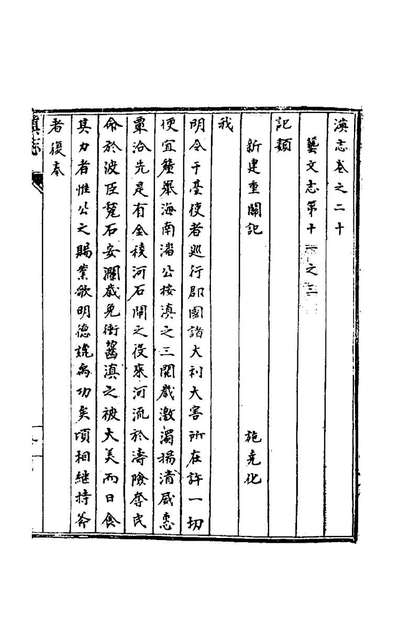 滇志卷之二十
藝文志第十之三
記類
新建重關記 施堯化
我
明令于臺使者巡行郡國諸大利大害所在許一切
便宜釐舉海南潘公按滇之三閱歲激濁揚清威惠
覃洽先是有金稜河石閘之役來河流於濤險奪民
命於波臣甃石安瀾歲免衝齧滇之被大美而日食
其力者惟公之賜業歌明德詵為功矣頃相繼持斧
者復奏
滇志